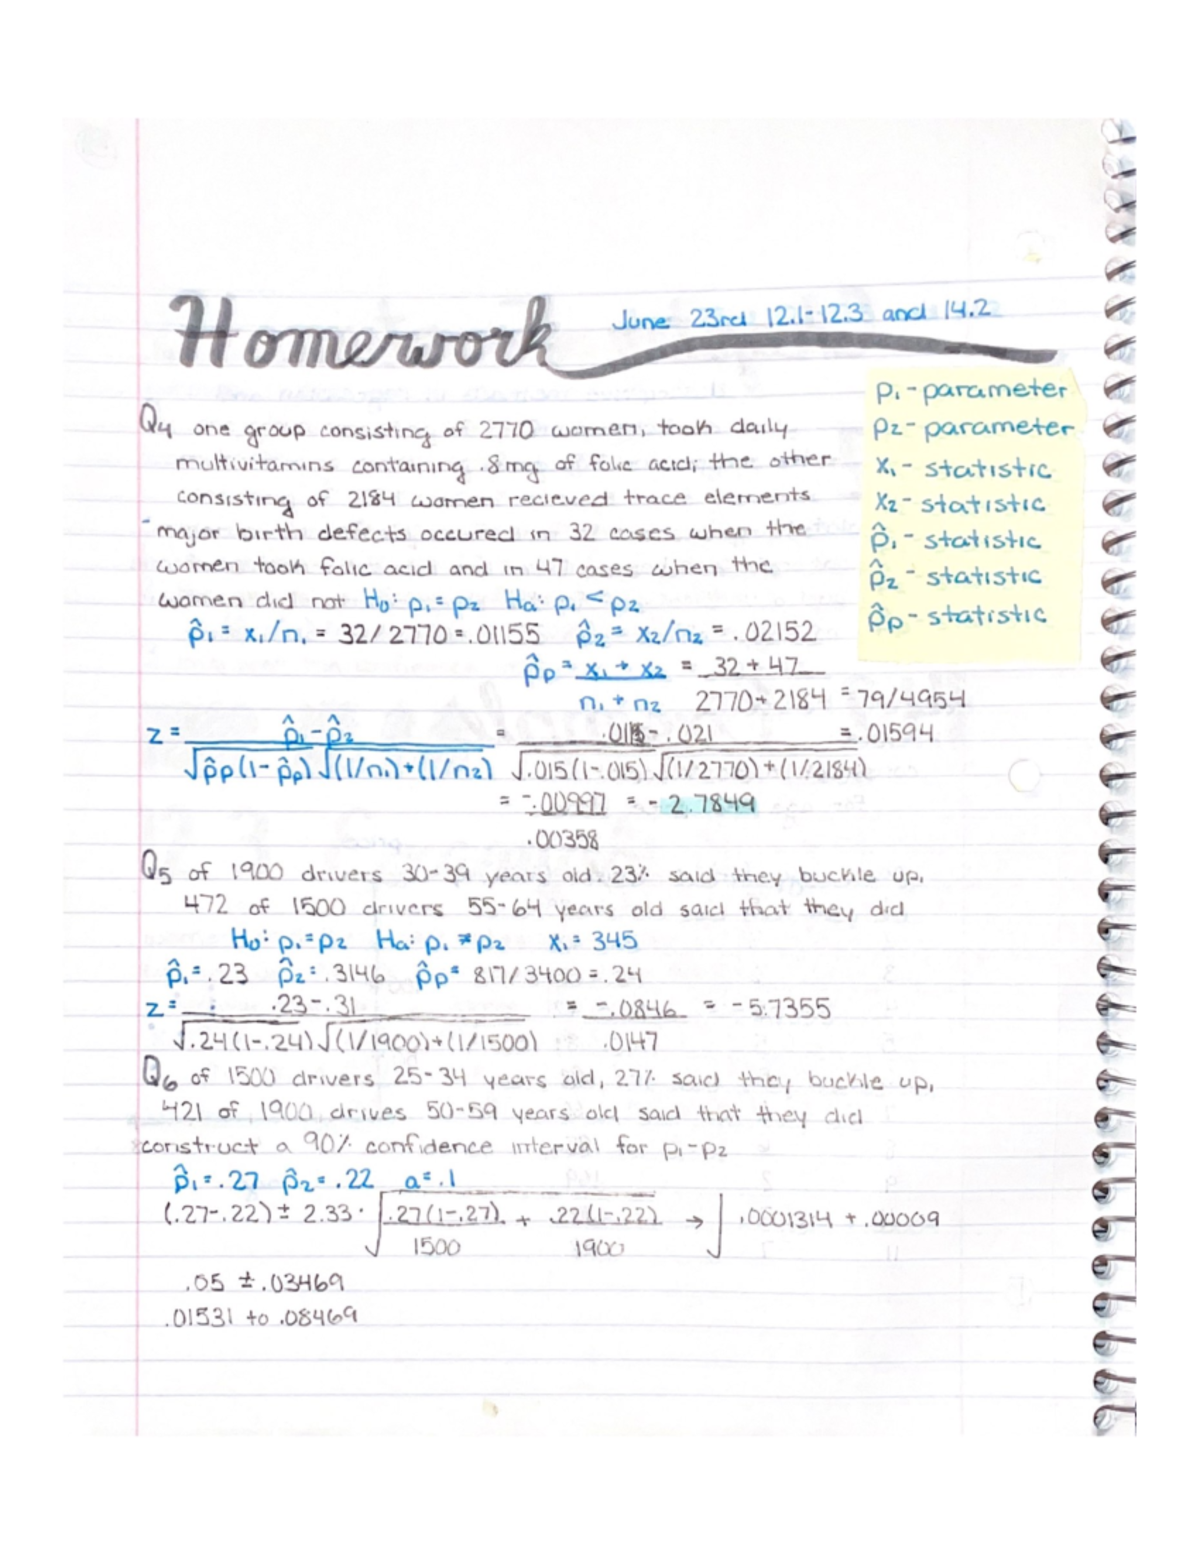 Homework
June 23rd 12.1-12.3 and 14.2
p₁ - parameter
p₂ - parameter
x₁ - statistic
x₂ - statistic
p̂₁ - statistic
p̂₂ - statistic
p̂p - statistic
Q4 one group consisting of 2770 women, took daily
multivitamins containing .8mg of folic acid; the other
consisting of 2184 women recieved trace elements
- major birth defects occured in 32 cases when the
women took folic acid and in 47 cases when the
women did not H₀: p₁ = p₂ Ha: p₁ < p₂
p̂₁ = x₁/n₁ = 32/2770 = .01155 p̂₂ = x₂/n₂ = .02152
p̂p = x₁ + x₂ = 32 + 47
n₁ + n₂ 2770 + 2184 = 79/4954
z = p̂₁ - p̂₂ = .0115 - .021 = .01594
√p̂p(1-p̂p) √(1/n₁)+(1/n₂) √.015(1-.015) √(1/2770)+(1/2184)
= -.00997 = -2.7849
.00358
Q5 of 1900 drivers 30-39 years old. 23% said they buckle up,
472 of 1500 drivers 55-64 years old said that they did
H₀: p₁ = p₂ Ha: p₁ ≠ p₂ x₁ = 345
p̂₁ = .23 p̂₂ = .3146 p̂p = 817/3400 = .24
z = .23 - .31 = -.0846 = -5.7355
√.24(1-.24) √(1/1900)+(1/1500) .0147
Q6 of 1500 drivers 25-34 years old, 27% said they buckle up,
421 of 1900 drives 50-59 years old said that they did
construct a 90% confidence interval for p₁-p₂
p̂₁ = .27 p̂₂ = .22 a = .1
(.27-.22) ± 2.33 · √.27(1-.27) + .22(1-.22) → √.0001314 + .00009
1500 1900
.05 ± .03469
.01531 to .08469